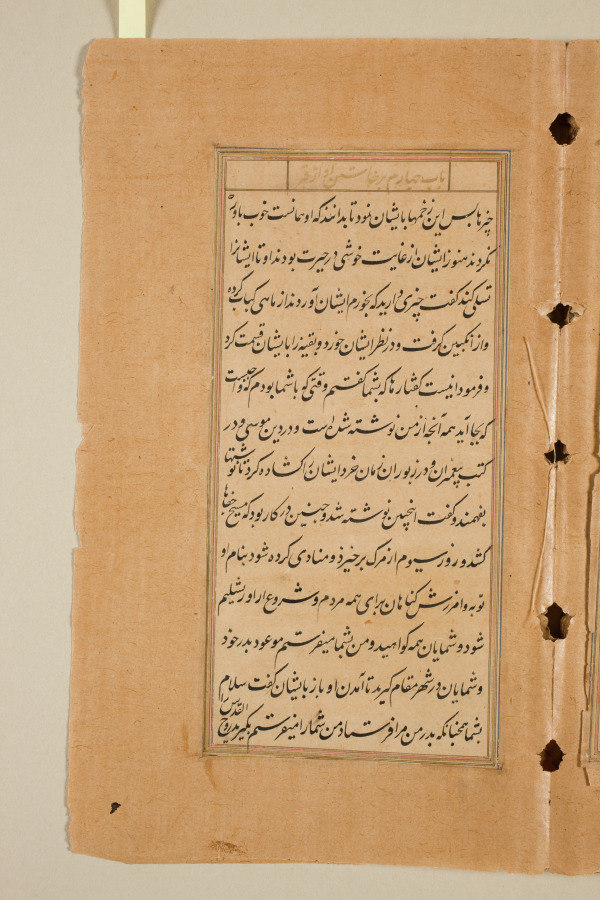 باب چهارم برخاستن او از قبر
چیزها پس این زخمها بایشان نمود تا بدانند که او همانست خوب باور
نکردند هنوز ایشان از غایت خوشی در حیرت بودند او تا ایشانرا
تسلی کند گفت چیزی دارید که بخورم ایشان آوردند از ماهی کباب کرده
و از انگبین گرفت و در نظر ایشان خورد و بقیه را بایشان قسمت کرد
و فرمود اینست گفتارها که بشما گفتم وقتی که با شما بودم که واجبست
که بجا آید همه آنچه از من نوشته شده است و در دین موسی و در
کتب پیغمبران و در زبور ان زمان خرد ایشان را کشاده کرد تا نوشتها
بفهمند و گفت اینچنین نوشته شد و چنین در کار بود که مسیح جفاها
کشد و روز سیوم از مرگ برخیزد و منادی کرده شود بنام او
توبه و امرزش گناهان برای همه مردم و شروع از اورشلیم
شود و شمایان همه گواهید و من بشما میفرستم موعود پدر خود
و شمایان در شهر مقام گیرید تا آمدن او باز بایشان گفت سلام
بشما همچنانکه پدر من مرا فرستاد من شما را میفرستم بگیرید روح القدس را